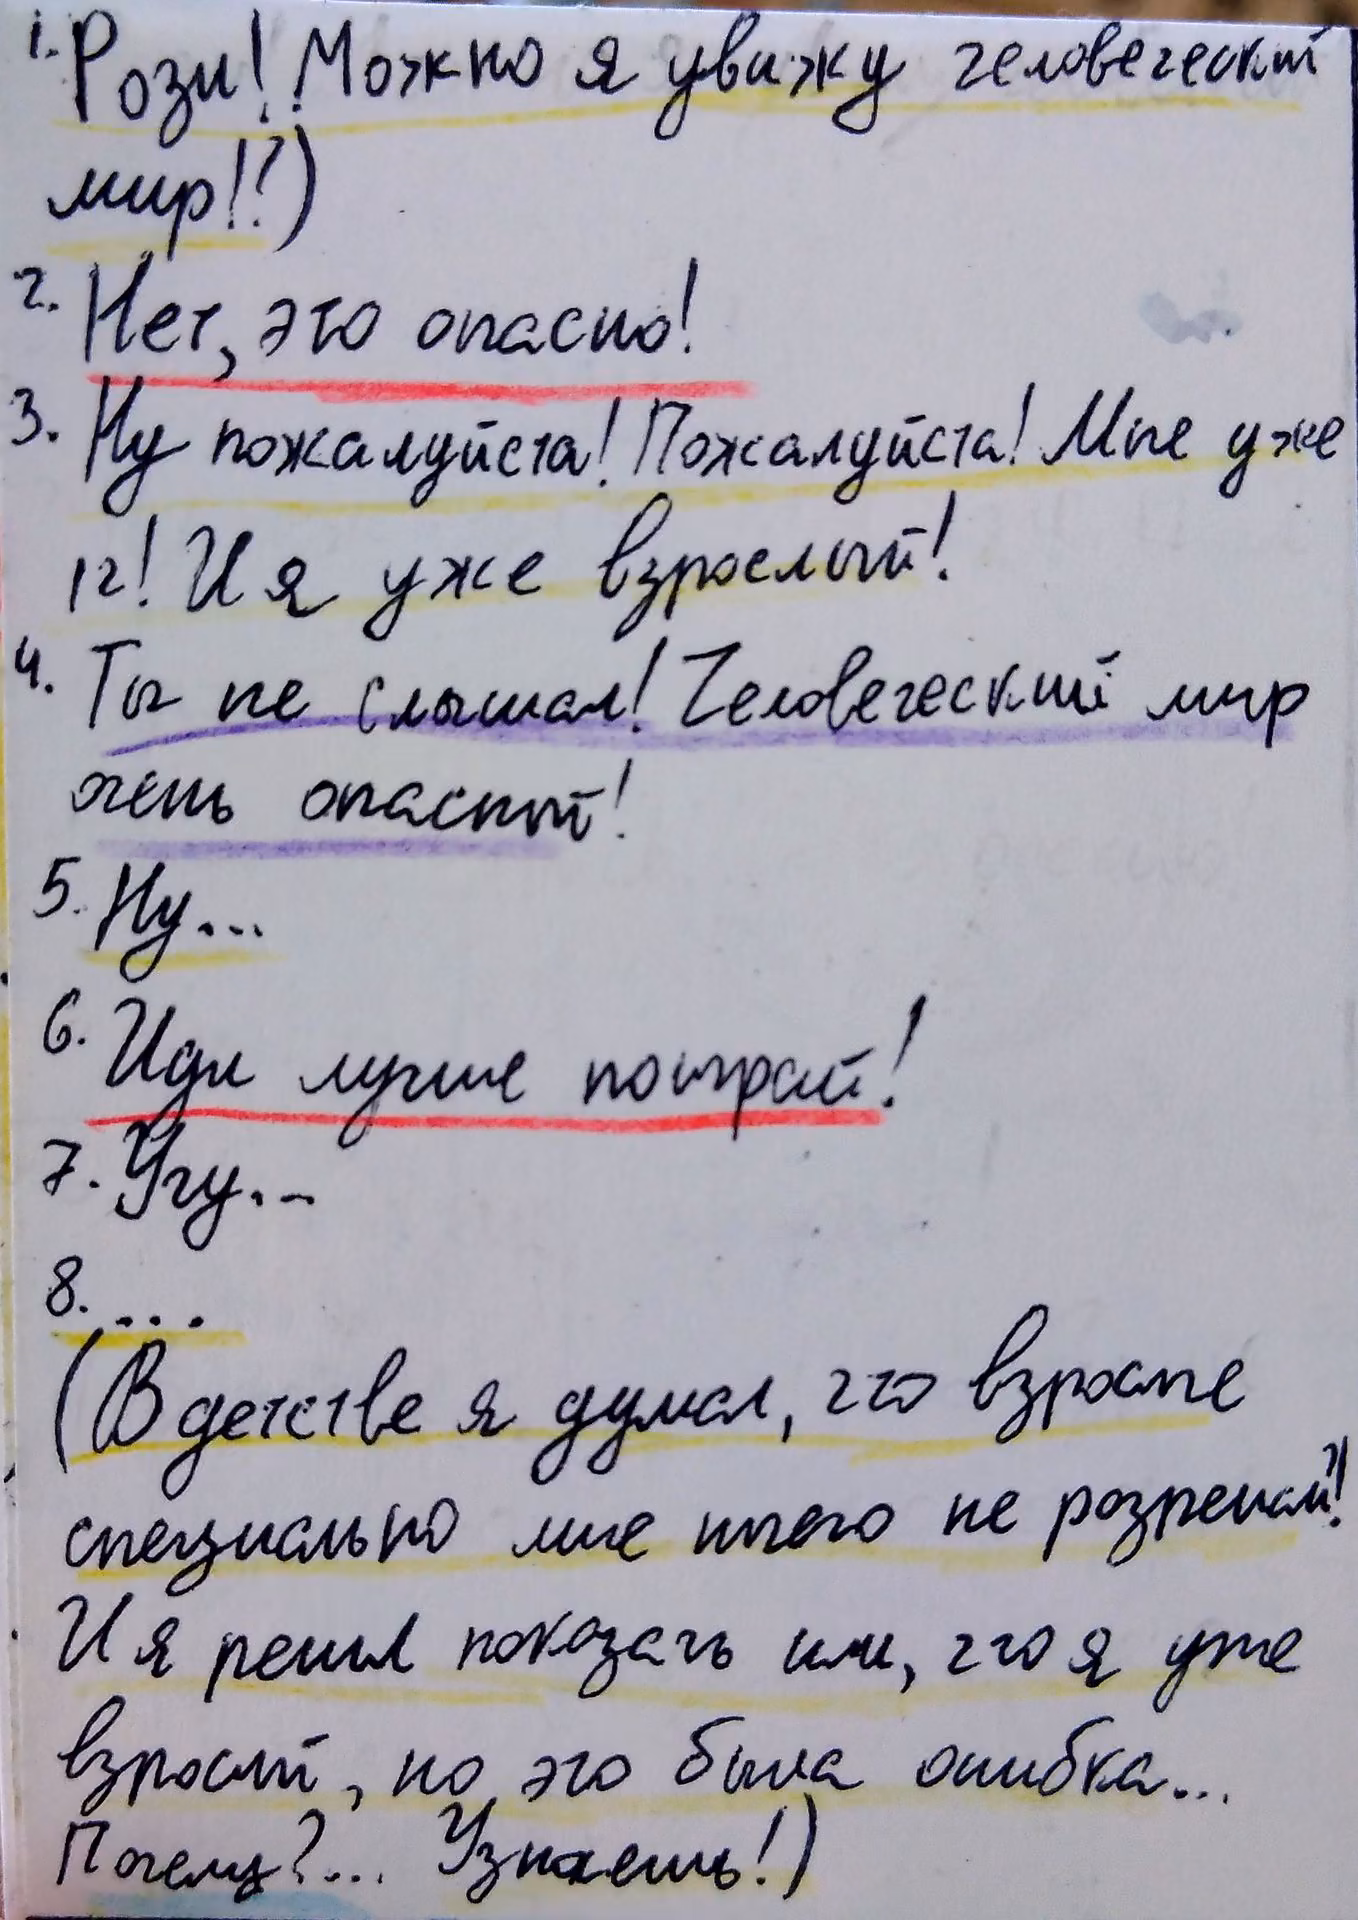 1. Рози! Можно я увижу человеческий
мир!?)
2. Нет, это опасно!
3. Ну пожалуйста! Пожалуйста! Мне уже
12! И я уже взрослый!
4. Ты не слышал! Человеческий мир
очень опасный!
5. Ну...
6. Иди лучше поиграй!
7. Угу...
8. ...
(В детстве я думал, что взрослые
специально мне ничего не розрешали!
И я решил показать им, что я уже
взрослый, но это была ошибка...
Почему?... Узнаешь!)